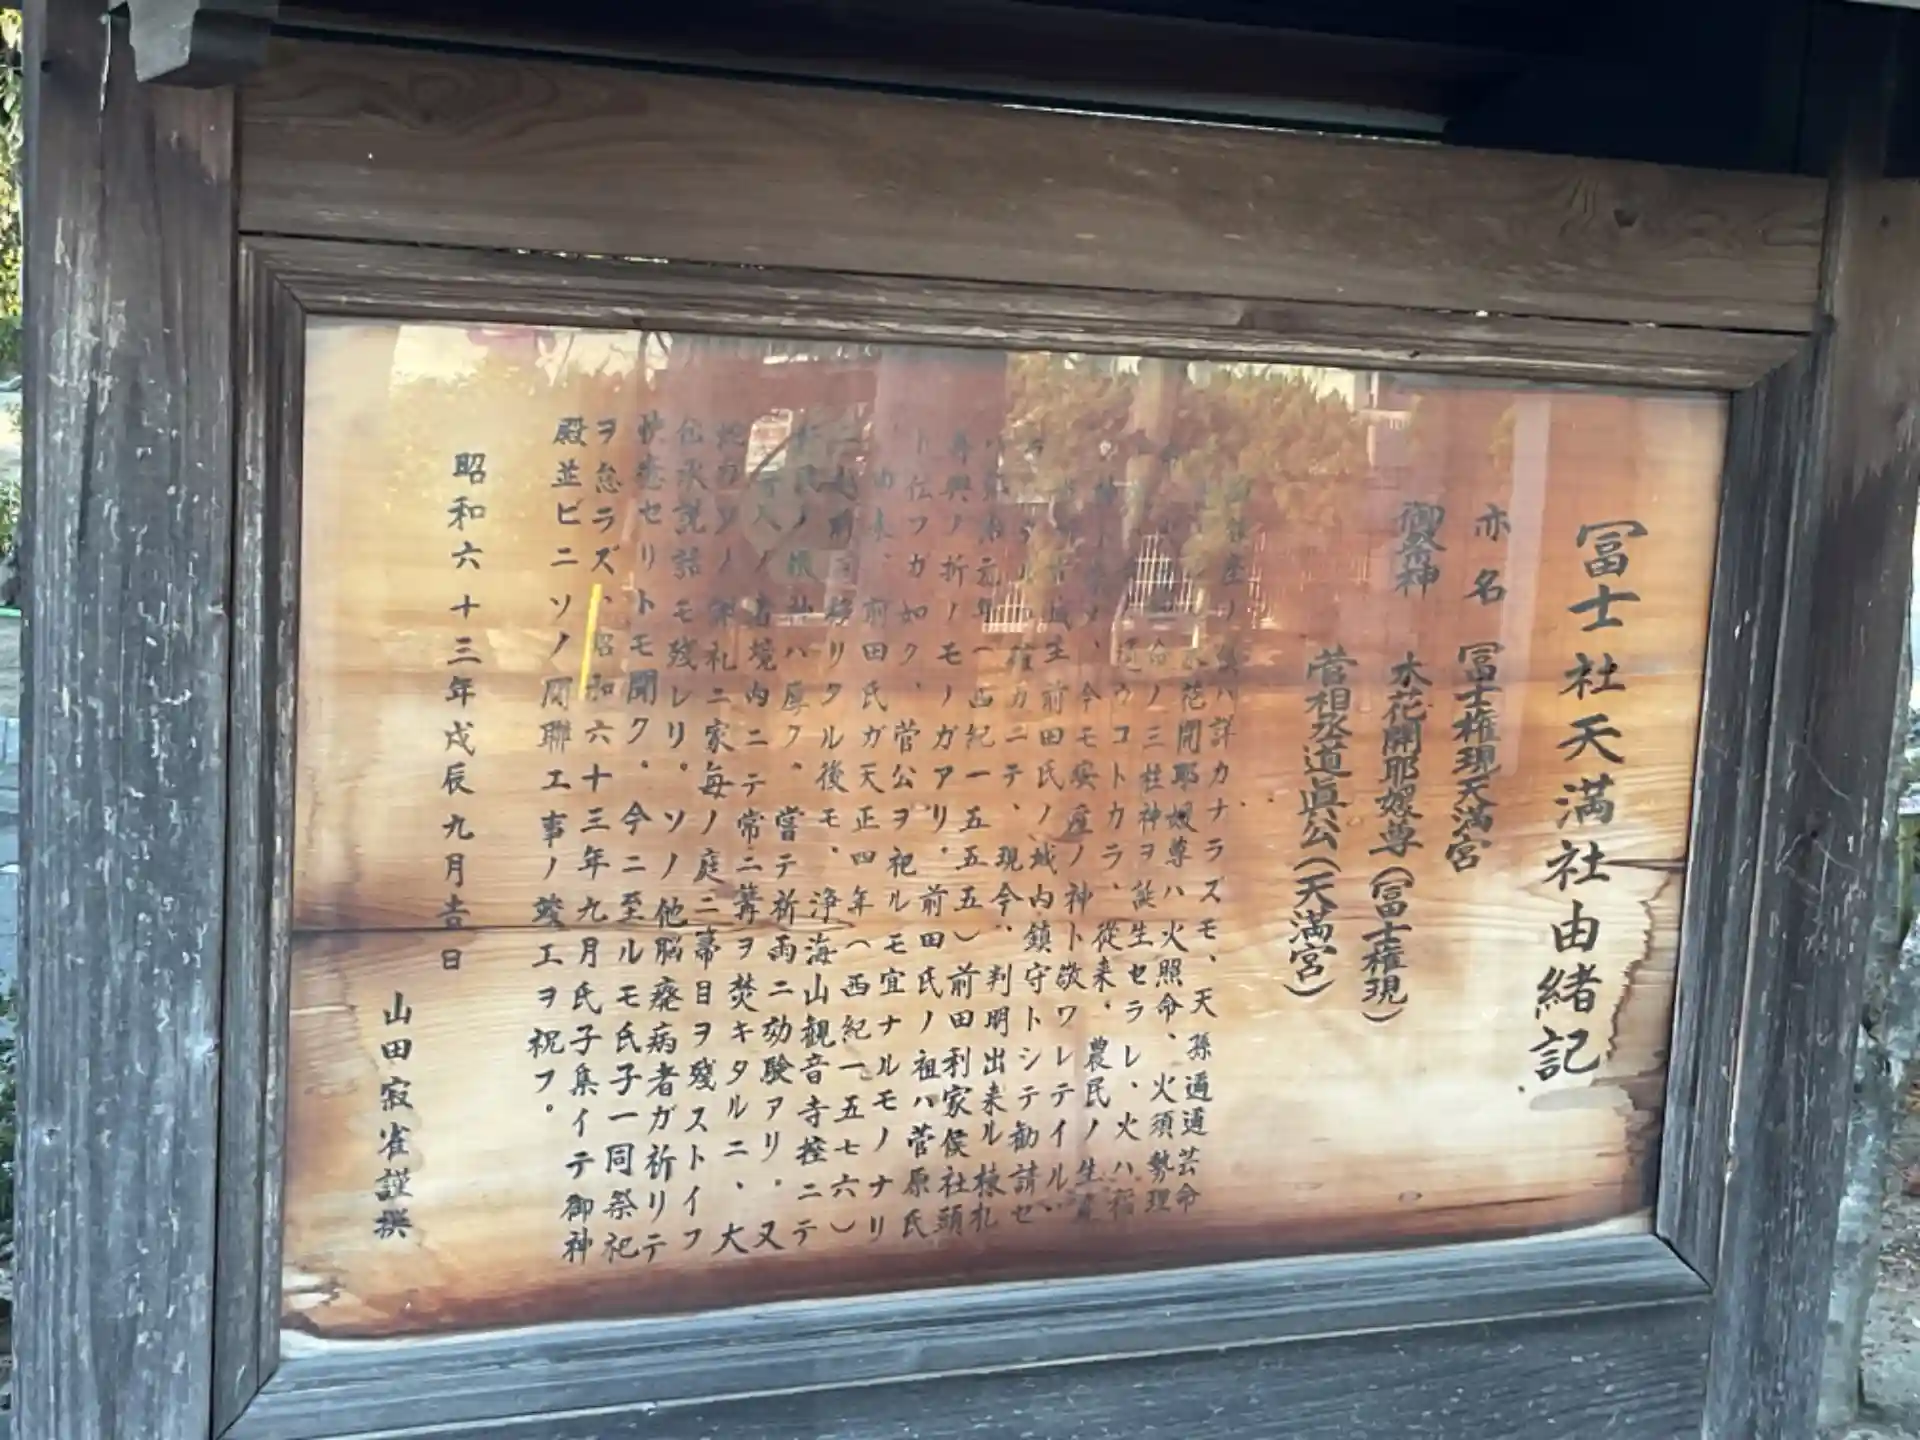 冨士社天満社由緒記
亦名 冨士権現天満宮
御祭神 木花開耶媛尊(冨士権現)
菅相丞道眞公(天満宮)
座ノ ハ詳カナラズモ、天孫邇邇芸命
花開耶媛尊ハ火照命、火須勢理
命ノ三柱神ヲ誕生セラレ、火ハ稲
ウコトカラ、従来、農民ノ生
今モ安産ノ神ト敬ワレテイル
城主前田氏ノ城内鎮守トシテ勧請セ
確カニテ、現今、判明出来ル棟札
元年(西紀一五五五)前田利家侯社頭
興ノ折ノモノガアリ、前田氏ノ祖ハ菅原氏
ト伝フガ如ク、菅公ヲ祀ルモ宜ナルモノナリ
由来、前田氏ガ天正四年(西紀一五七六)
移リタル後モ、浄海山観音寺控ニテ
民ノ ハ厚ク。嘗テ祈雨ニ効験アリ、又
境内ニテ常ニ篝ヲ焚キタルニ、大
祭礼ニ家毎ノ庭ニ箒目ヲ残ストイフ
伝承説話モ残レリ。ソノ他脳癈病者ガ祈リテ
快癒セリトモ聞ク。今ニ至ルモ氏子一同祭祀
ヲ怠ラズ、昭和六十三年九月氏子集イテ御神
殿並ビニソノ関聯工事ノ竣工ヲ祝フ。
昭和六十三年戊辰九月吉日
山田寂雀謹撰